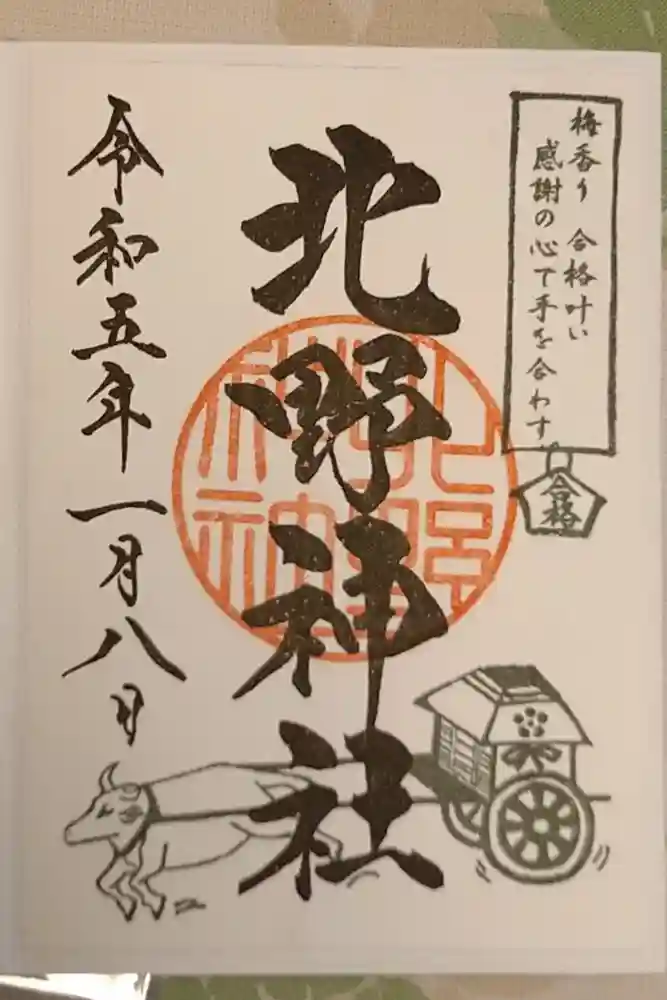 梅香り 合格叶い
感謝の心で手を合わす。
合格
北野神社
北野神社
令和五年一月八日